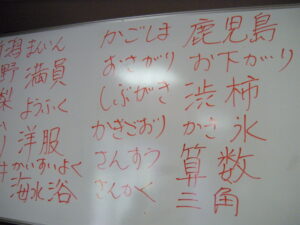 潟 まんいん かごしま 鹿児島
野 満員 おさがり お下がり
梨 ようふく しぶがき 渋柿
り 洋服 かきごおり かき氷
井 かいすいよく さんすう 算数
海水浴 さんかく 三角